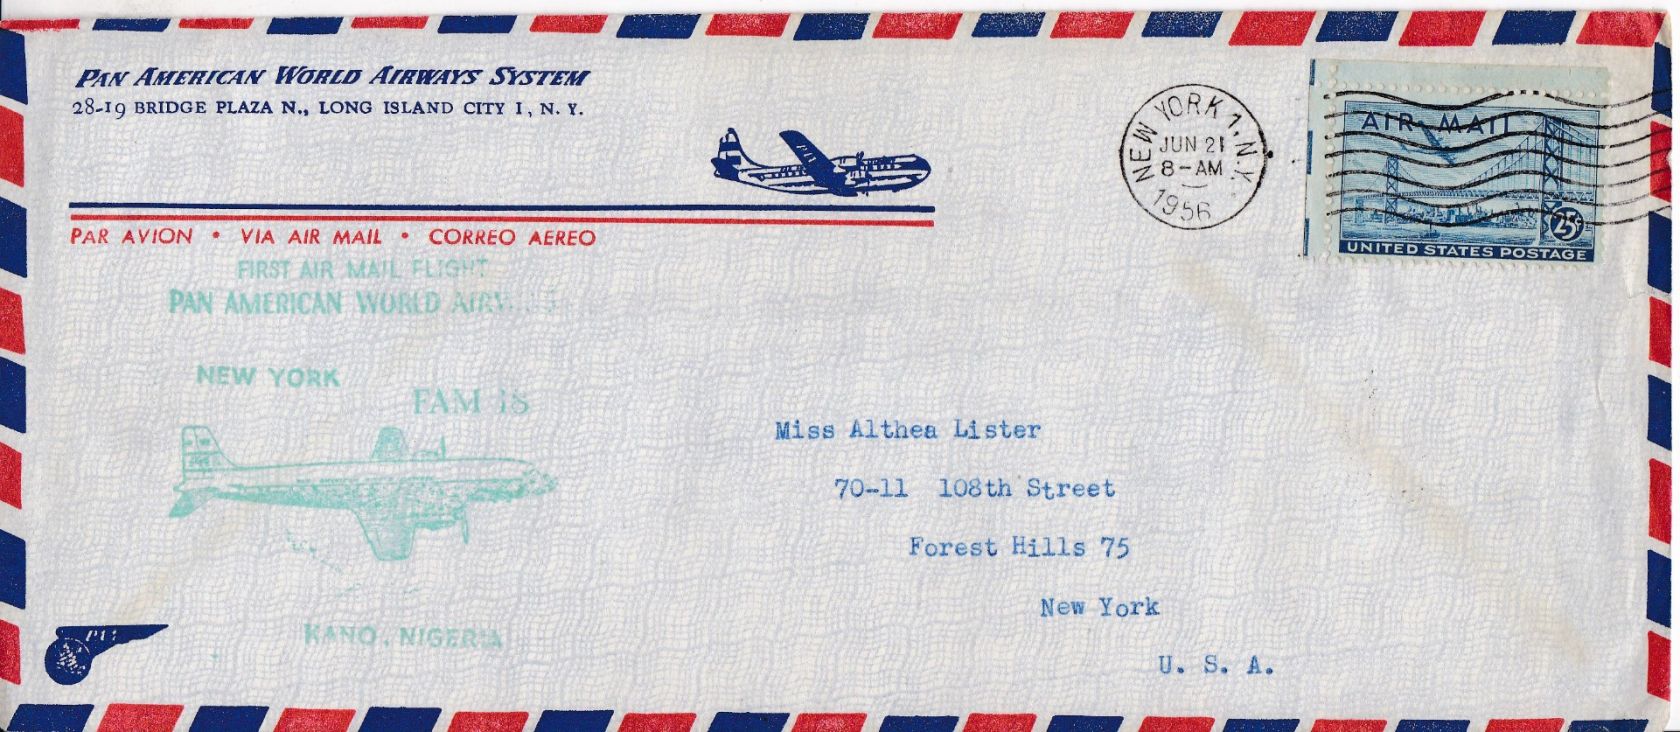 PAN AMERICAN WORLD AIRWAYS SYSTEM
28-19 BRIDGE PLAZA N., LONG ISLAND CITY 1, N. Y.
NEW YORK 1, N.Y.
JUN 21
8-AM
1956
AIR MAIL
25¢
UNITED STATES POSTAGE
PAR AVION • VIA AIR MAIL • CORREO AEREO
FIRST AIR MAIL FLIGHT
PAN AMERICAN WORLD AIRWAYS
NEW YORK
FAM 18
Miss Althea Lister
70-11 108th Street
Forest Hills 75
New York
U. S. A.
KANO, NIGERIA